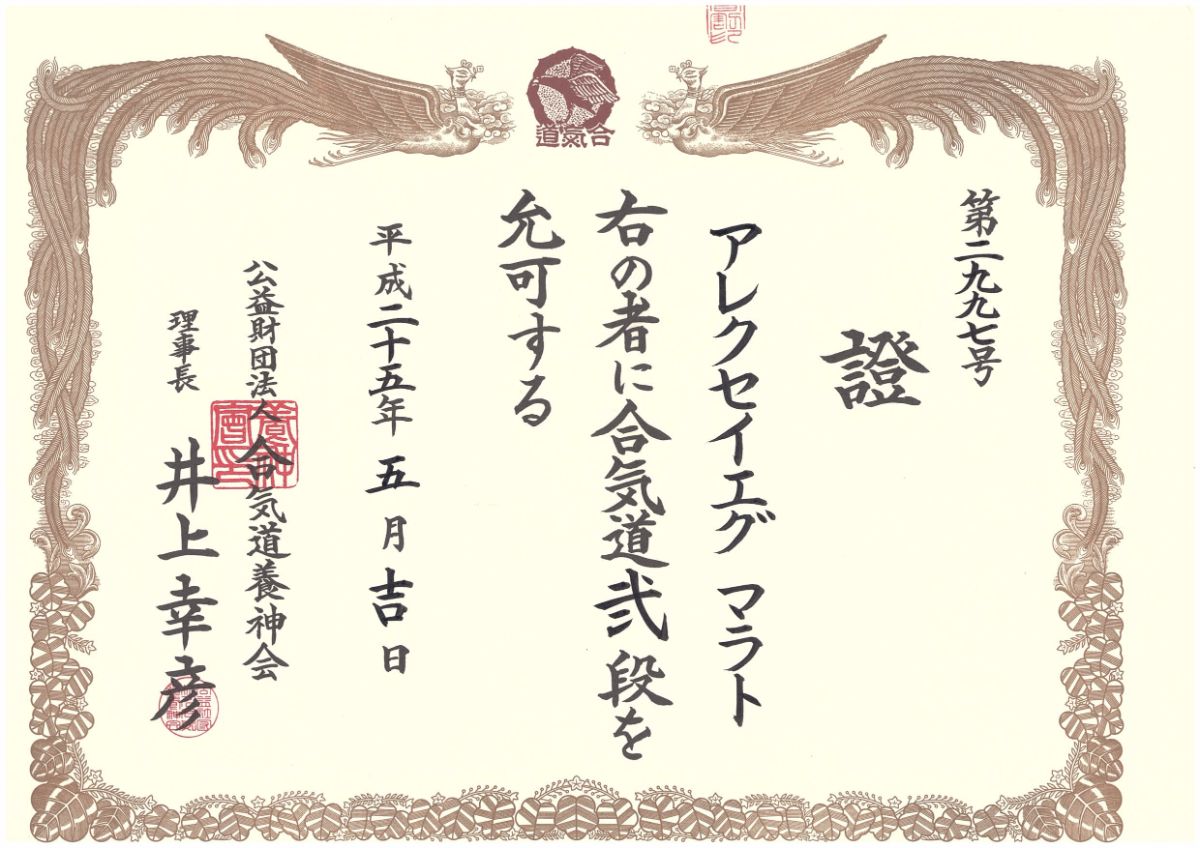 合氣道
第二九九七号
證
アレクセイエグ マラト
右の者に合気道弐段を
允可する
平成二十五年 五月吉日
公益財団法人合気道養神会
理事長 井上幸彦